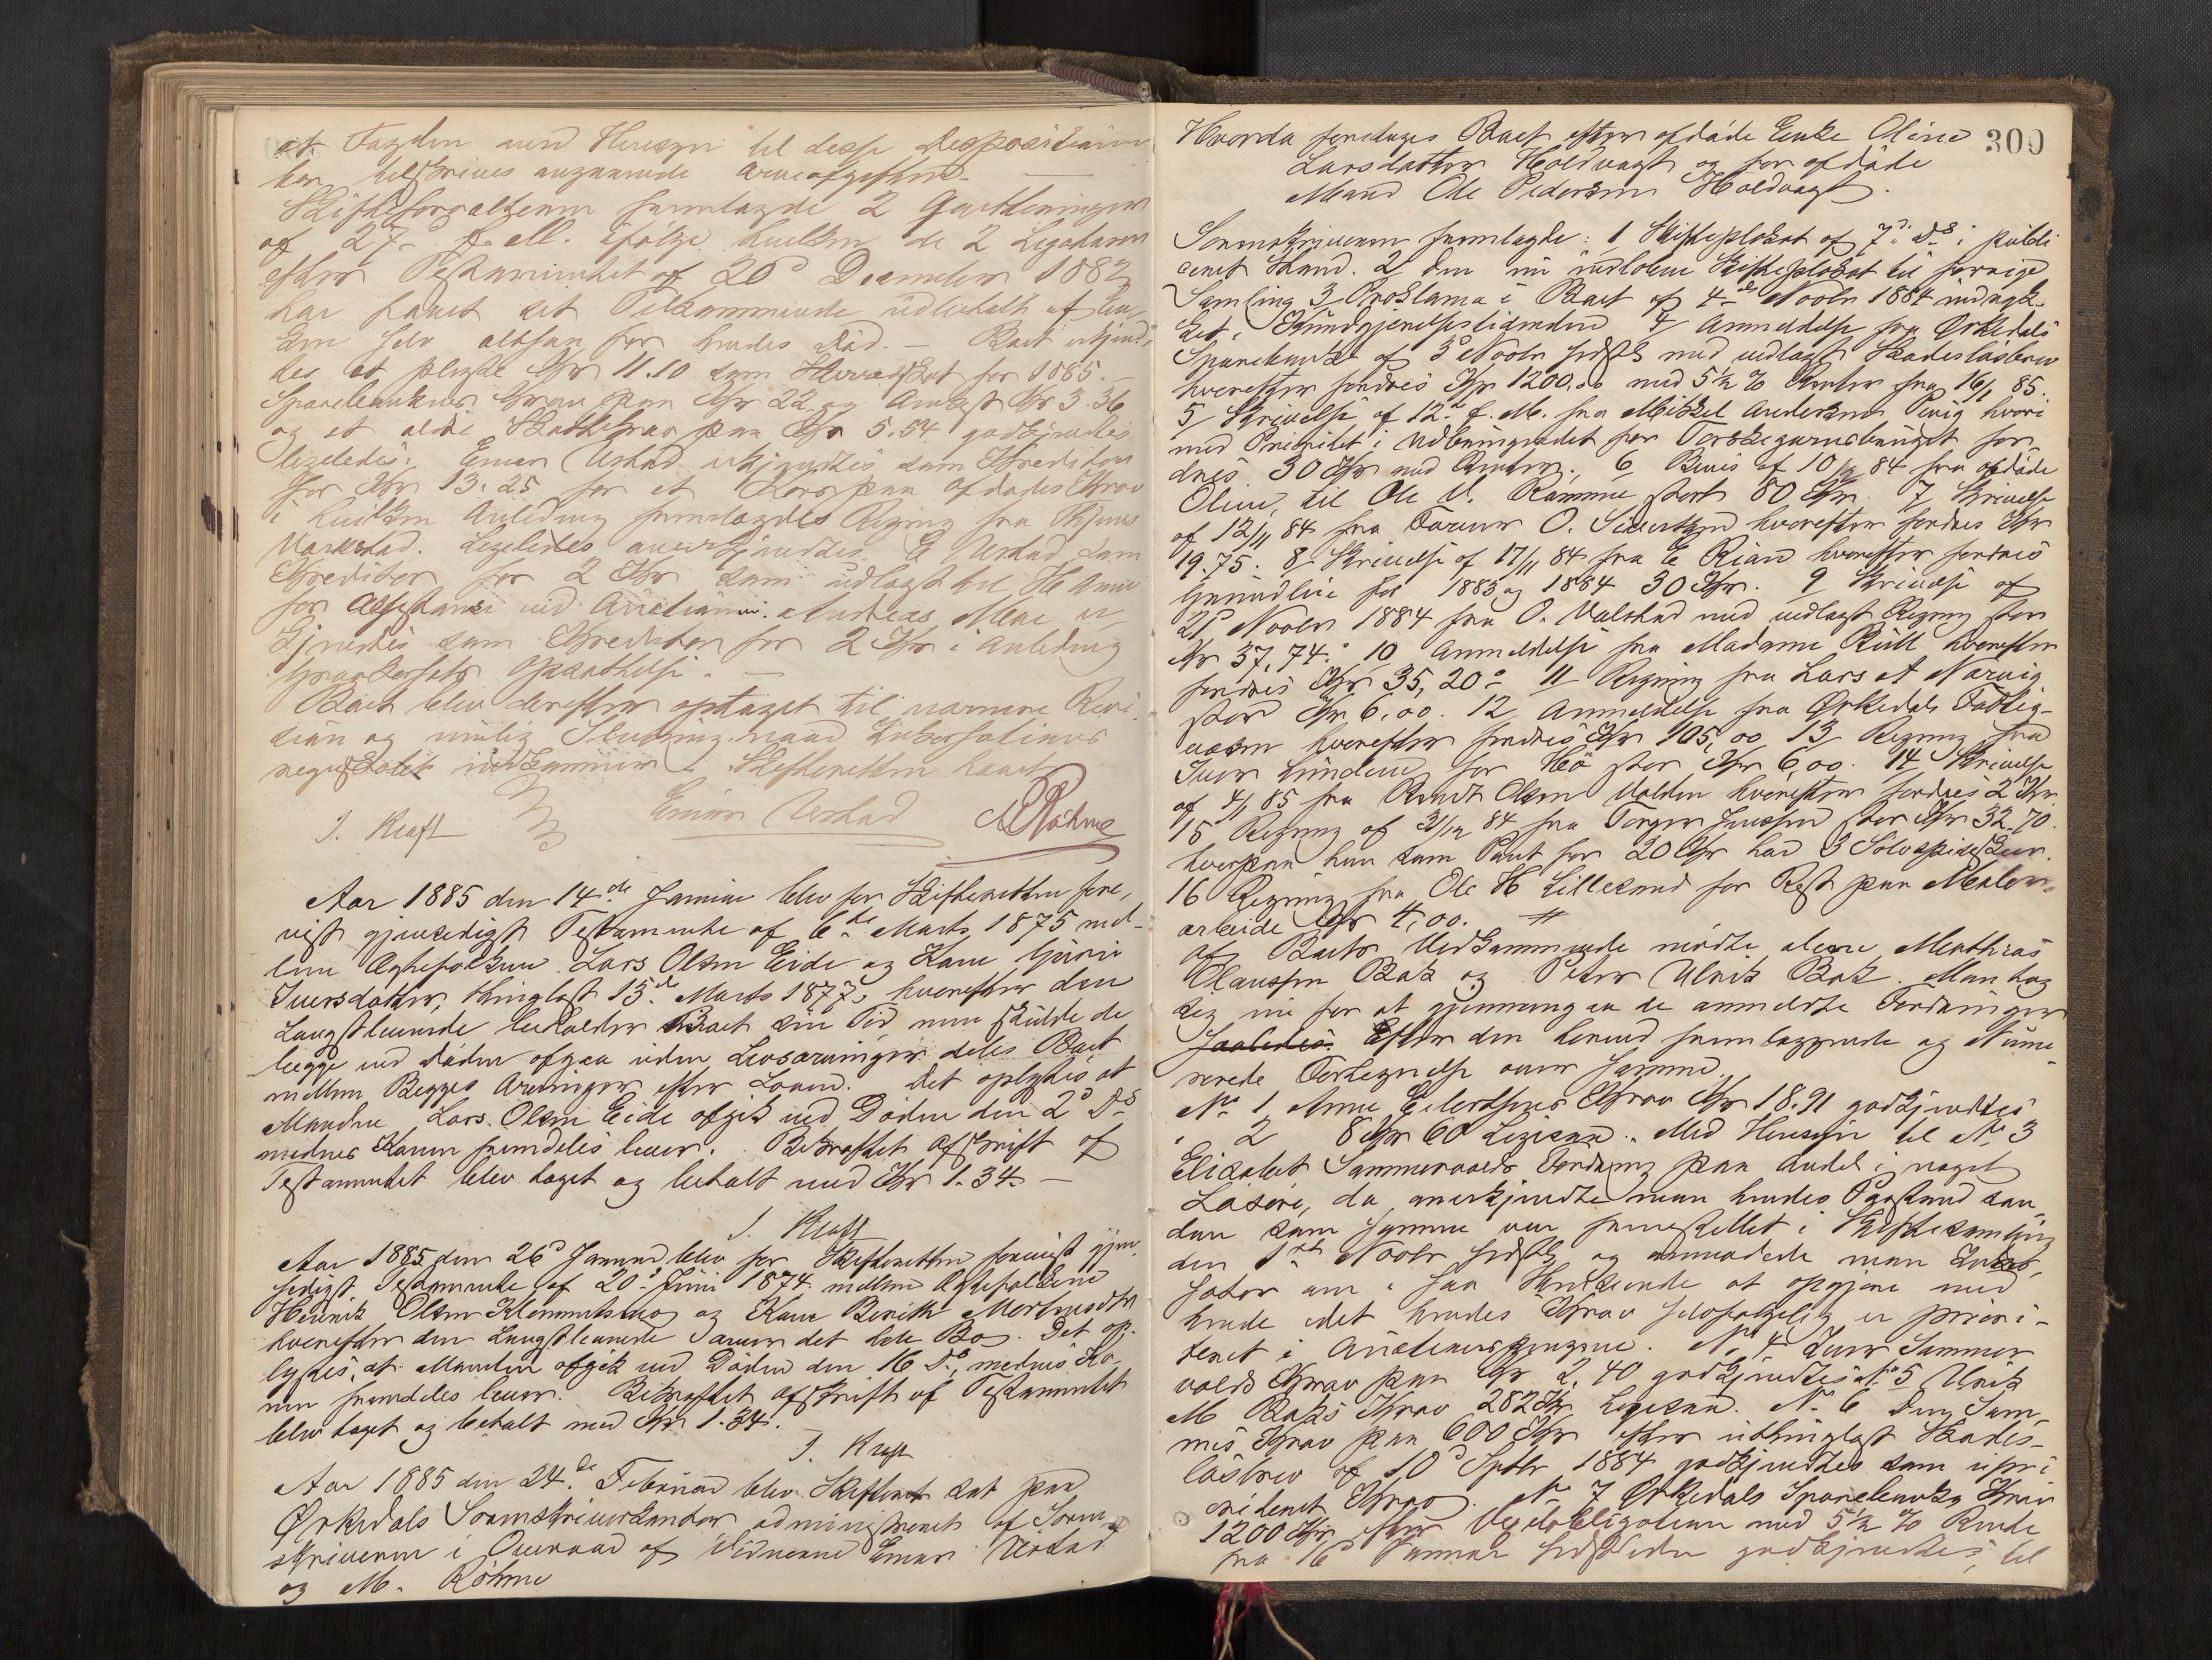 at Tagsten med Hensyn til disse Dispositioner
bør tilskrives angaaende Arveafgiften. —
Skifteforvalteren fremlagde 2 Qvitteringer
af 27. f. M. ifølge hvilken de 2 Legatarer
efter Testamentet af 20d December 1882
har faaet sit Tilkommende udbetalt af En-
ken selv altsaa før hendes Død. — Boet erkjend-
tes at pligte Kr 11.10 som Herredskat for 1885.
Sparebankens Krav paa Kr 22 og Amtsst Kr 3.36
og et ældre Skattekrav paa Kr 5.54 godkjendtes
ligeledes. Einar Urstad erkjendtes som Kreditor
for Kr 13.25 for et Kors paa Afdødes Grav
i hvilken Anledning fremlagdes Regning fra
Markstad. Ligeledes anerkjendtes E Urstad som
Kreditor for 2 Kr som udlagt til
for Assistance ved Auctionen. Andreas Moe er-
kjendtes som Kreditor for 2 Kr i Anledning
Opsættelse. —
Boet blev derefter optaget til nærmere Revi-
sion og mulig Slutning naar Inkassationens
regnskab indkommer. Skifteretten hævet
J. Kraft Einar Urstad M Röhme
Aar 1885 den 14de Januar blev for Skifteretten fore-
vist gjensidigt Testamente af 6te Marts 1875 mel-
lem Ægtefolkene Lars Olsen Eide og Kone Guri
Iversdatter, thinglæst 15de Marts 1877, hvorefter den
Længstlevende beholder Boet sin Tid, men skulde de
begge ved Døden afgaa uden Livsarvinger deles Boet
mellem Begges Arvinger efter Loven. Det oplystes at
Manden Lars Olsen Eide afgik ved Døden den 2d Ds
medens Konen fremdeles lever. Bekræftet Afskrift af
Testamentet blev taget og betalt med Kr 1.34. —
J. Kraft
Aar 1885 den 26d Januar blev for Skifteretten forevist gjen-
sidigt Testamente af 20de Juni 1874 mellem Ægtefolkene
Henrik Olsen Klemmetsmo og Kone Berith Mortensdtr
hvorefter den Længstlevende arver det hele Bo. Det op-
lystes, at Manden afgik ved Døden den 16 Ds, medens Ko-
nen fremdeles lever. Bekræftet Afskrift af Testamentet
blev taget og betalt med Kr 1.34.
J. Kraft
Aar 1885 den 24de Februar blev Skifteret sat paa
Ørkedals Sorenskriverkontor administreret af Soren-
skriveren i Overvær af Vidnerne Einar Urstad
og M. Röhme
300
Hvorda foretages Boet efter afdøde Enke Oline
Larsdatter Holdvagt og før afdøde
Mand Ole Pedersen Holdvagt.
Sorenskriveren fremlagde: 1 Skifteplakat af 7de Ds i publi-
ceret Stand. 2 den nu indløbne Skifteplakat til forrige
Samling 3 Proklama i Boet af 4de Novbr 1884 indryk-
ket i Kundgjørelsestidenden 4 Anmeldelse fra Ørkedals
Sparebank af 3d Novbr sidstl med vedlagt Skadesløsbrev
hvorefter fordres Kr 1200.00 med 5½ % Renter fra 16/1 85.
5 Skrivelse af 12te f. M. fra Mikkel Andersen Pevig hvori
med Prioritet i Udbringendet for Torskegarnsbruget for-
dres 30 Kr med Renter. 6 Bevis af 10/12 84 fra afdøde
Oline, til Ole M. Ramme stort 80 Kr. 7 Skrivelse
af 12/11 84 fra Farver O. Sivertsen hvorefter fordres Kr
19.75. 8 Skrivelse af 17/11 84 fra E Rian hvorefter fordres
Grundleie for 1883 og 1884 30 Kr. 9 Skrivelse af
21d Novbr 1884 fra O. Valstad med vedlagt Regng stor
Kr 37,74. 10 Anmeldelse fra Madame Rüll hvorefter
fordres Kr 35,20. 11 Regning fra Lars A Narvig
stor Kr 6,00. 12 Anmeldelse fra Ørkedals Fattig-
væsen hvorefter fordres Kr 105,00 13 Regning fra
Iver Lündem for Hø stor Kr 6,00. 14 Skrivelse
af 4/1 85 fra Arndt Olsen Volden hvorefter fordres 2 Kr
15 Regning af 31/12 84 fra Torger Jensen stor Kr 32.70
hvorpaa han som Pant for 20 Kr har 3 Sølvspiseskeer.
16 Regning fra Ole H Lillesund for Rest paa Maler-
arbeide Kr 4,00.
Af Boets Vedkommende mødte alene Mathias
Olaussen Bak og Peter Ulrik Bak. Man tog
sig nu for at gjennemgaa de anmeldte Fordringer
saaledes Efter den herved fremlagte og Nume-
rerede Fortegnelse over samme.
No 1 Anne Eilertsens Krav Kr 18.91 godkjendtes
" 2 8 Kr 60 Ligesaa. Med Hensyn til No 3
Elisabet Sommervolds Fordring paa Andel i noget
Løsøre, da anerkjendte man hendes Paastand saa-
dan som samme var fremstillet i Skiftesamling
den 1ste Novbr sidstl og anmodede man Inkas-
sator om i saa Henseende at opgjøre med
hende idet hendes Krav selvfølgelig er priori-
teret i Auctionspengene. No 4 Iver Sommer-
volds Krav paa Kr 2,40 godkjendtes No 5 Ulrik
M Baks Krav 282 Kr Ligesaa. No 6 Sam-
mes Krav paa 600 Kr efter uthinglæst Skades-
løsbrev af 10d Septbr 1884 godkjendtes som upri-
oriteret Krav. No 7 Ørkedals Sparebanks Krav
1200 Kr efter Vexelobligation med 5½ % Rente
fra 16d Januar sidstleden godkjendtes, til